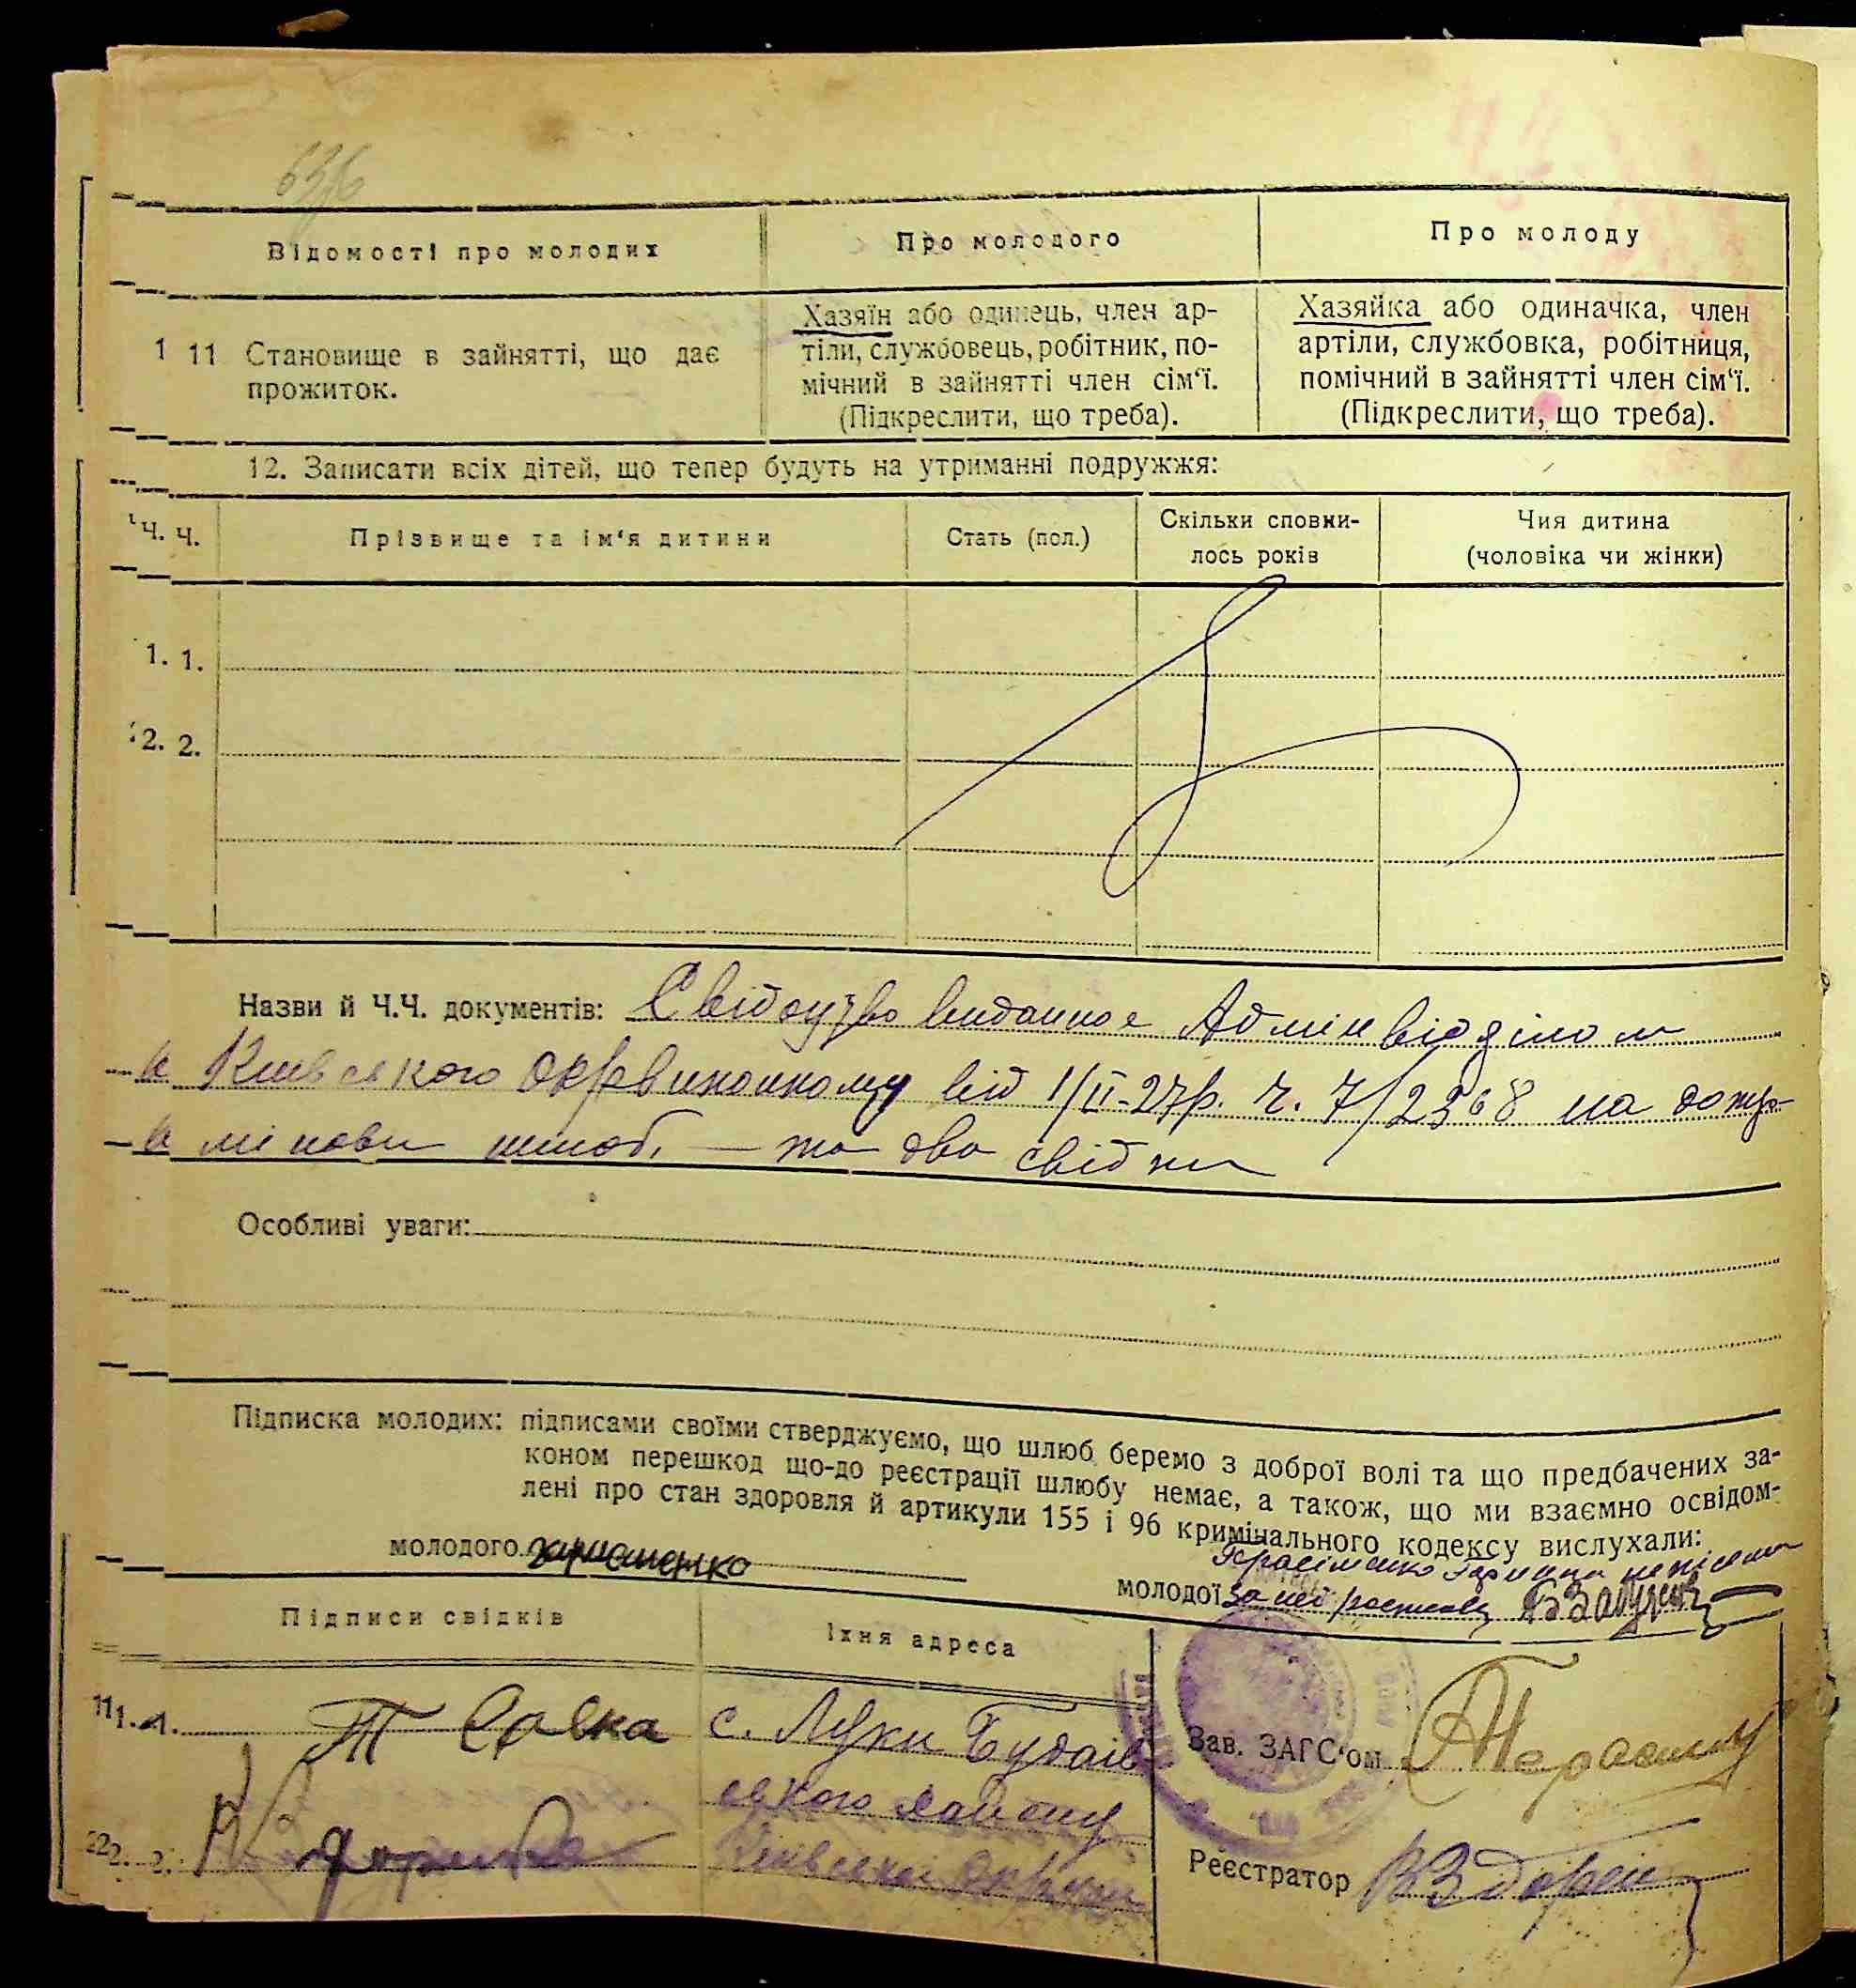 Відомості про молодих
Про молодого
Про молоду
1 11 Становище в зайнятті, що дає
прожиток.
Хазяїн або одинець, член ар-
тіли, службовець, робітник, по-
мічний в зайнятті член сім‘ї.
(Підкреслити, що треба).
Хазяйка або одиначка, член
артіли, службовка, робітниця,
помічний в зайнятті член сім‘ї.
(Підкреслити, що треба).
12. Записати всіх дітей, що тепер будуть на утриманні подружжя:
Ч. Ч.
Прізвище та ім‘я дитини
Стать (пол.)
Скільки сповни-
лось років
Чия дитина
(чоловіка чи жінки)
1. 1.
2. 2.
Назви й Ч.Ч. документів: Свідоцтво видатное Адмінвідділом
Київського Окрвиконкому від 1/II-27р. ч. 7/2368 на
та два свідки
Особливі уваги:
Підписка молодих: підписами своїми стверджуємо, що шлюб беремо з доброї волі та що предбачених за-
коном перешкод що-до реєстрації шлюбу немає, а також, що ми взаємно освідом-
лені про стан здоровля й артикули 155 і 96 кримінального кодексу вислухали:
молодого
Герасіменко
молодої за неї
Підписи свідків
Їхня адреса
1. Т Савка с. Луки Будаїв
ського району
2. Київської Округи
Зав. ЗАГС‘ом
Реєстратор